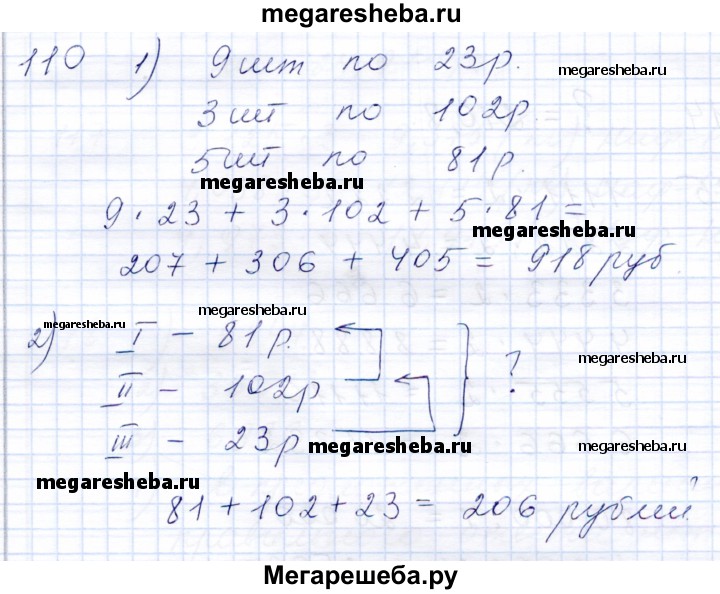 megaresheba.ru
110 1) 9 шт по 23р.
megaresheba.ru
3 шт по 102р.
5 шт по 81р.
megaresheba.ru
9 · 23 + 3 · 102 + 5 · 81 =
megaresheba.ru
207 + 306 + 405 = 918 руб
megaresheba.ru
megaresheba.ru
2) I – 81р.
megaresheba.ru
II – 102р ?
III – 23р
megaresheba.ru
megaresheba.ru
megaresheba.ru
81 + 102 + 23 = 206 рублей
Мегарешеба.ру